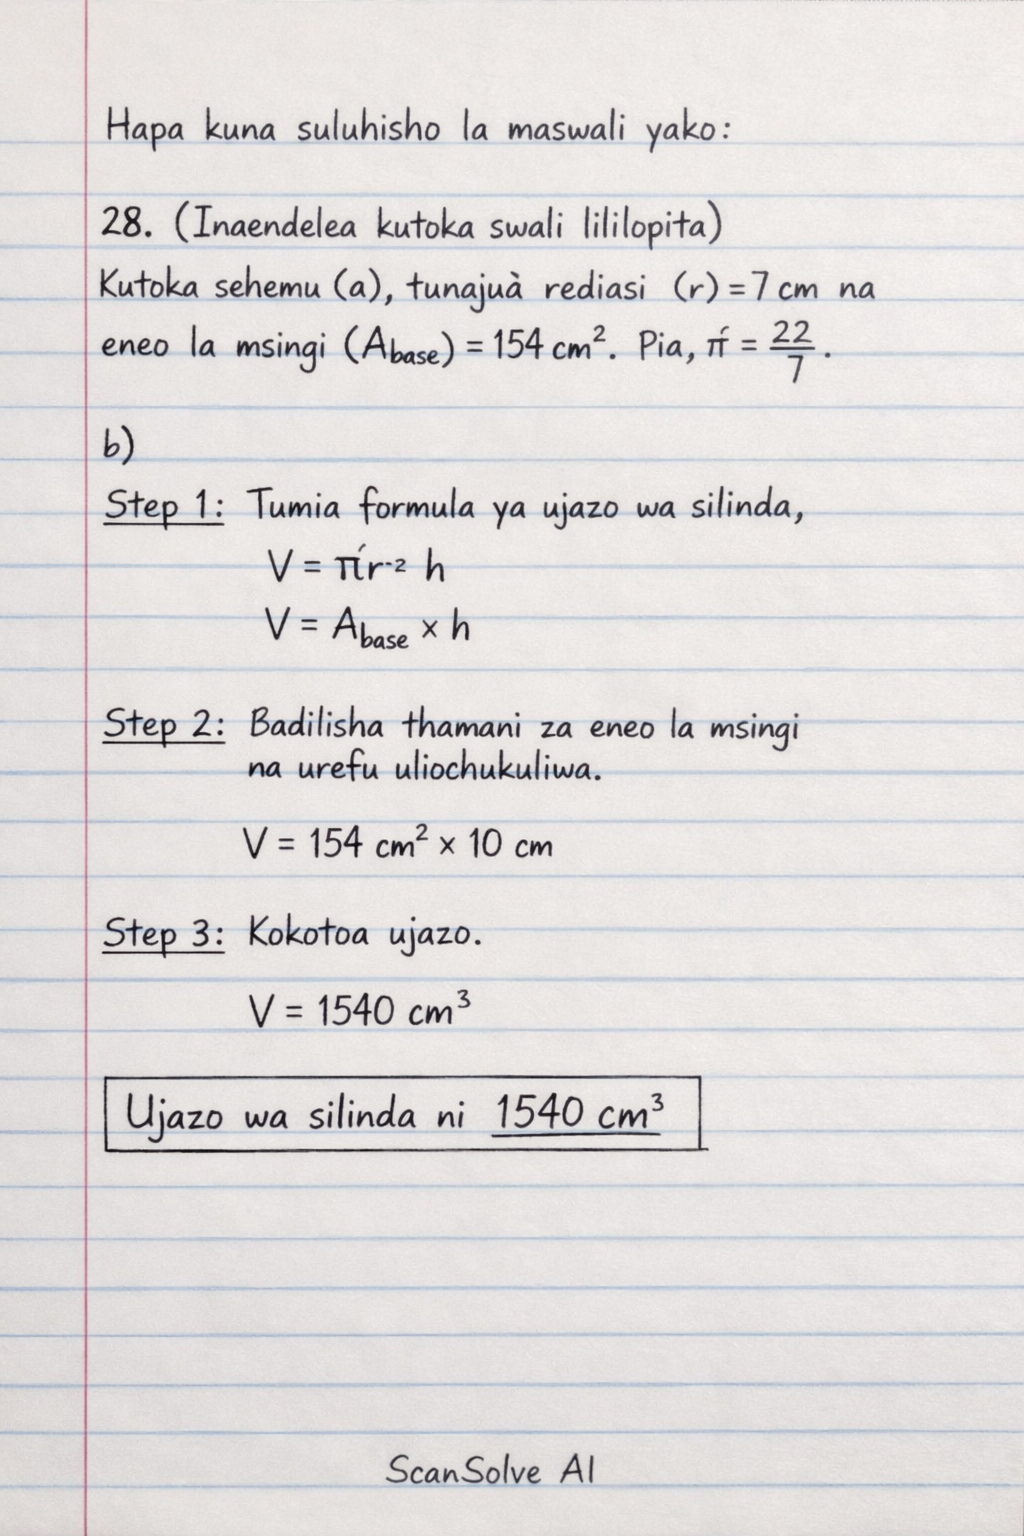 Hapa kuna suluhisho la maswali yako:
28. (Inaendelea kutoka swali lililopita)
Kutoka sehemu (a), tunajuà rediasi (r) = 7 cm na
eneo la msingi (A_base) = 154 cm². Pia, π́ = 22/7.
b)
Step 1: Tumia formula ya ujazo wa silinda,
V = π́r⁻² h
V = A_base × h
Step 2: Badilisha thamani za eneo la msingi
na urefu uliochukuliwa.
V = 154 cm² × 10 cm
Step 3: Kokotoa ujazo.
V = 1540 cm³
Ujazo wa silinda ni 1540 cm³
ScanSolve AI